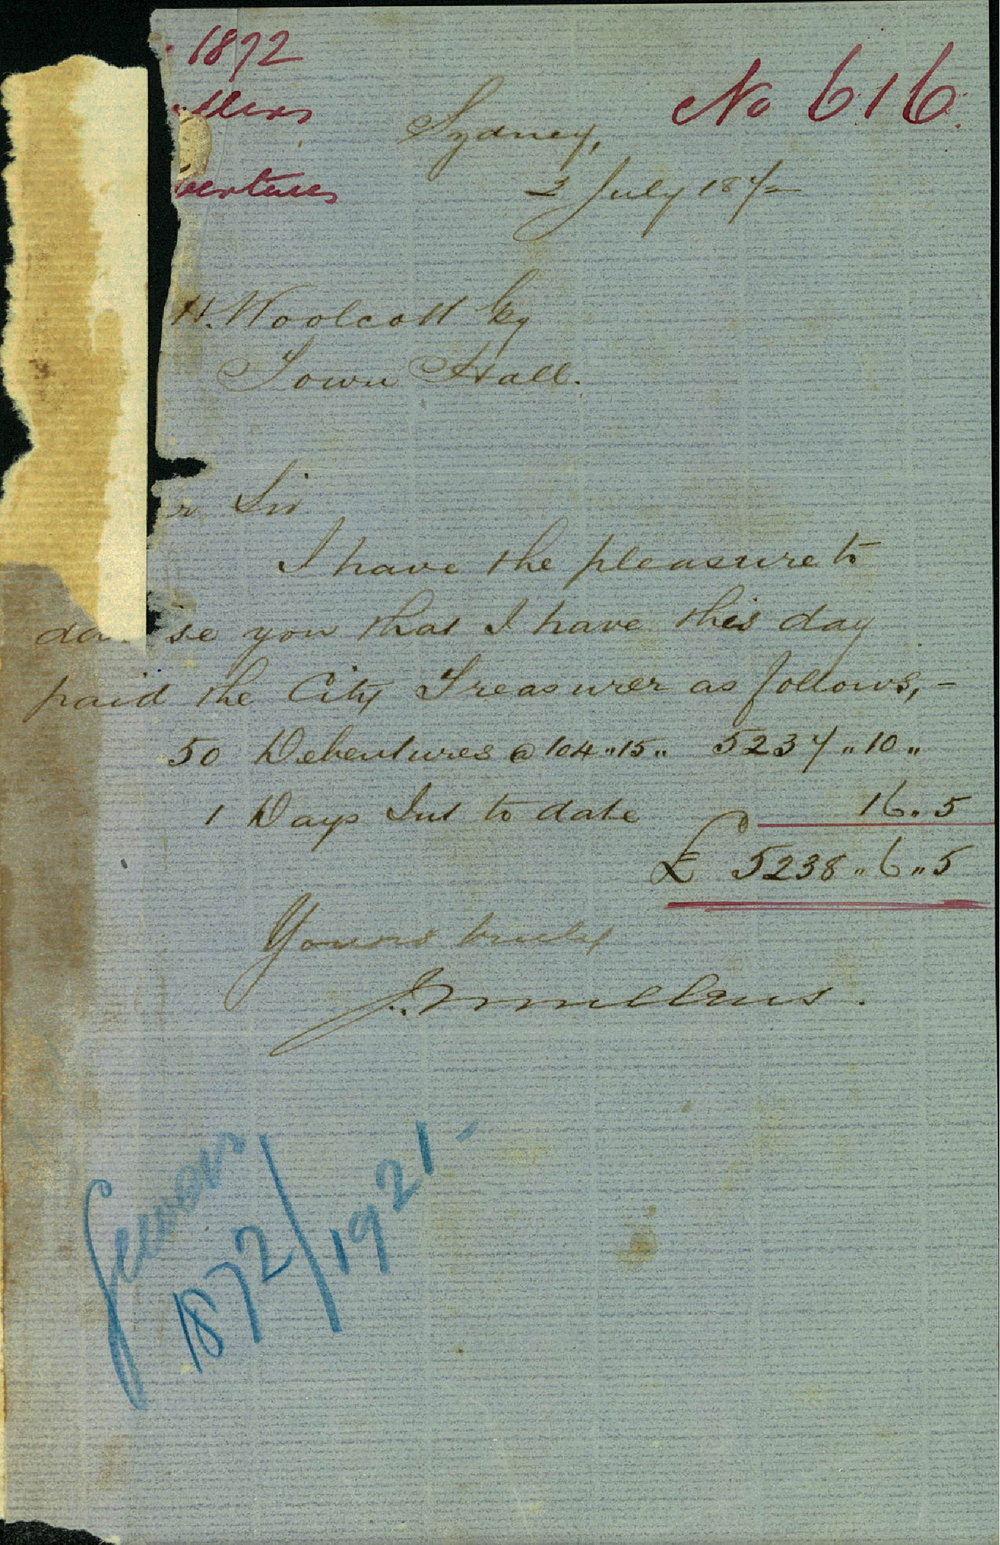 1872
No 616.
Sydney,
2 July 1872
H. Woolcott Esq
Town Hall.
r Sir
I have the pleasure to
se you that I have this day
paid the City Treasurer as follows,-
50 Debentures @ 104"15" 5237"10"
1 Days Int to date 16.5
£ 5238"6"5
Yours truly
1872/1921-